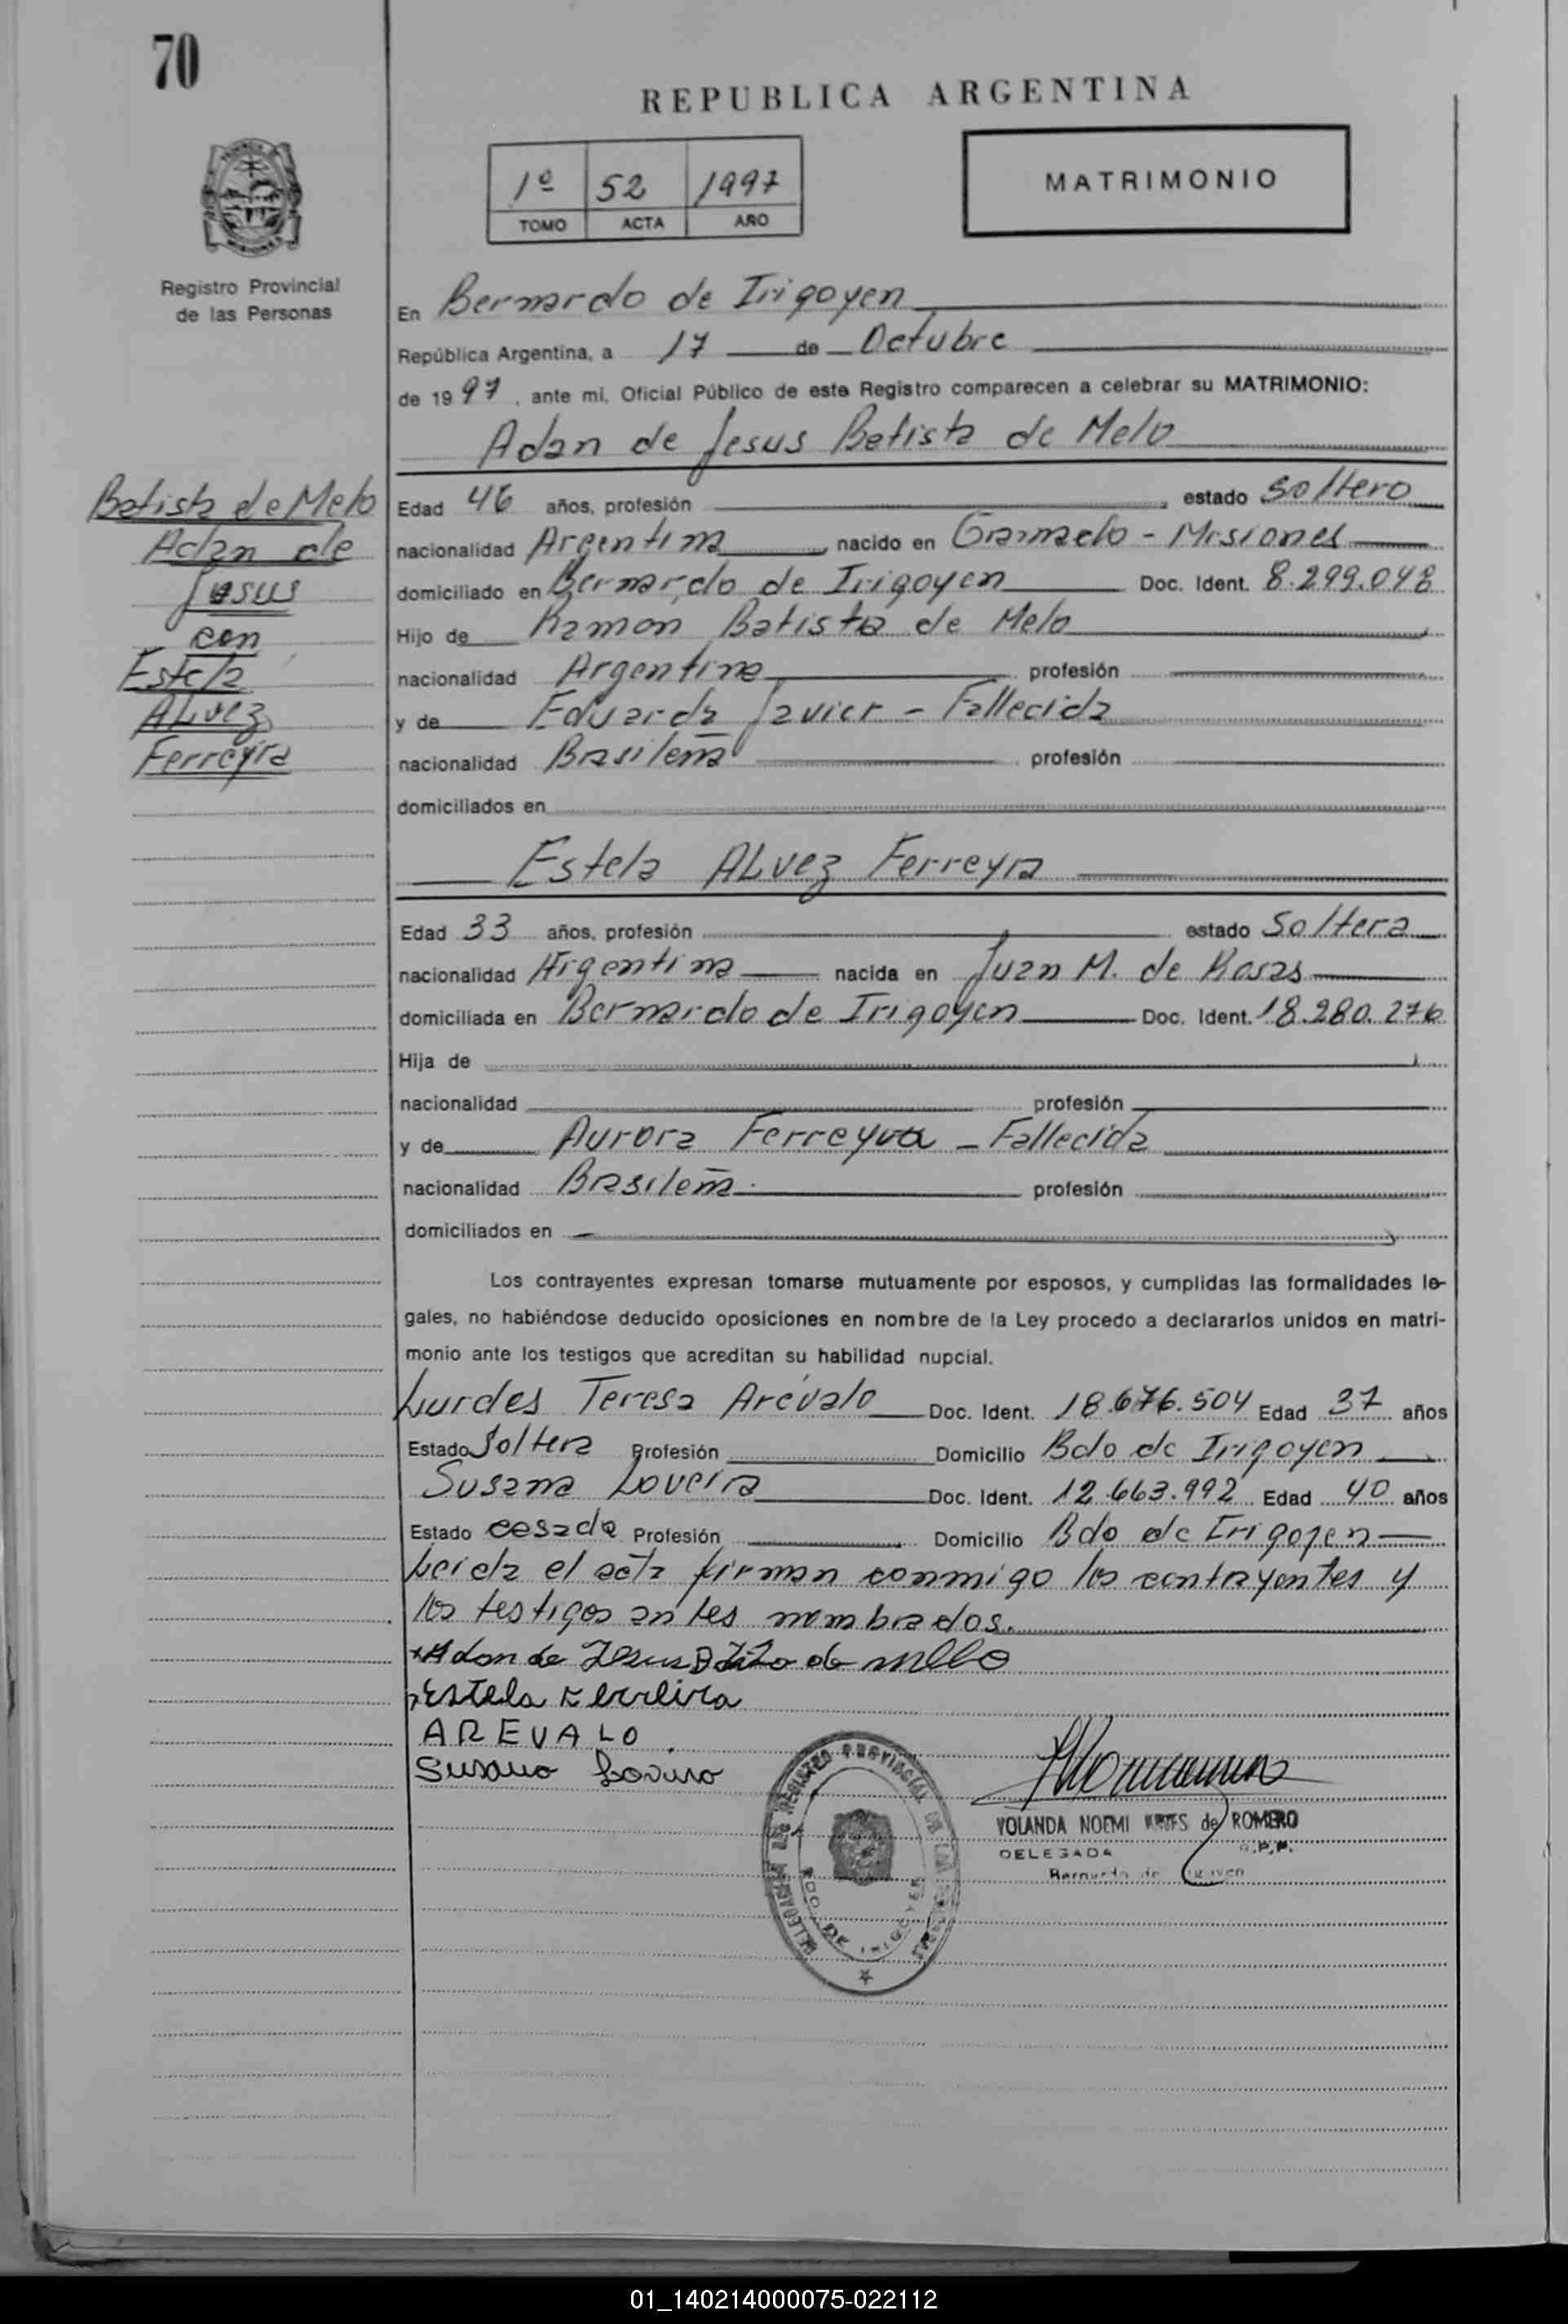 70
REPUBLICA ARGENTINA
1º 52 1997
TOMO ACTA AÑO
MATRIMONIO
Registro Provincial
de las Personas
En Bernardo de Irigoyen
República Argentina, a 17 de Octubre
de 1997, ante mi, Oficial Público de este Registro comparecen a celebrar su MATRIMONIO:
Adan de Jesus Batista de Melo
Batista de Melo
Adan de
Jesus
con
Estela
ALvez
Ferreyra
Edad 46 años, profesión estado Soltero
nacionalidad Argentina nacido en - Misiones
domiciliado en Bernardo de Irigoyen Doc. Ident. 8.299.048
Hijo de Ramon Batista de Melo
nacionalidad Argentina profesión
y de Eduarda Javier - Fallecida
nacionalidad Brasileña profesión
domiciliados en
Estela ALvez Ferreyra
Edad 33 años, profesión estado Soltera
nacionalidad Argentina nacida en Juan M. de Rosas
domiciliada en Bernardo de Irigoyen Doc. Ident. 18.280.276
Hija de
nacionalidad profesión
y de Aurora Ferreyra - Fallecida
nacionalidad Brasileña profesión
domiciliados en
Los contrayentes expresan tomarse mutuamente por esposos, y cumplidas las formalidades le-
gales, no habiéndose deducido oposiciones en nombre de la Ley procedo a declararlos unidos en matri-
monio ante los testigos que acreditan su habilidad nupcial.
Lurdes Teresa Arévalo Doc. Ident. 18.676.504 Edad 37 años
Estado Soltera Profesión Domicilio Bdo de Irigoyen
Susana Loveira Doc. Ident. 12.663.992 Edad 40 años
Estado casada Profesión Domicilio Bdo de Irigoyen
Leida el acta firman conmigo los contrayentes y
los testigos antes nombrados.
Adan de Jesus de
Estela
AREVALO
Susana
DELEGACION DEL REGISTRO PROVINCIAL DE LAS PERSONAS
BDO. DE IRIGOYEN
YOLANDA NOEMI de ROMERO
DELEGADA R.P.P.
Bernardo de Irigoyen
01_140214000075-022112